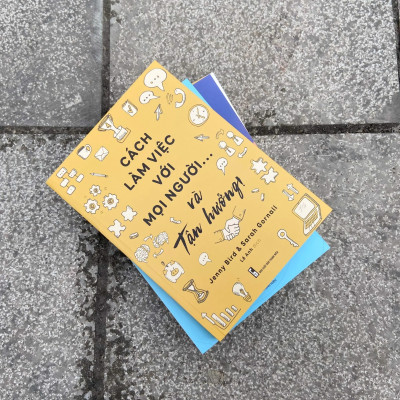 CÁCH
LÀM VIỆC
VỚI
MỌI NGƯỜI...
và
Tận hưởng!
Jenny Bird & Sarah Gornall
Lê Anh